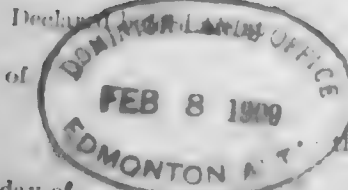 of
DOMINION LANDS OFFICE
FEB 8 1909
EDMONTON A
day of